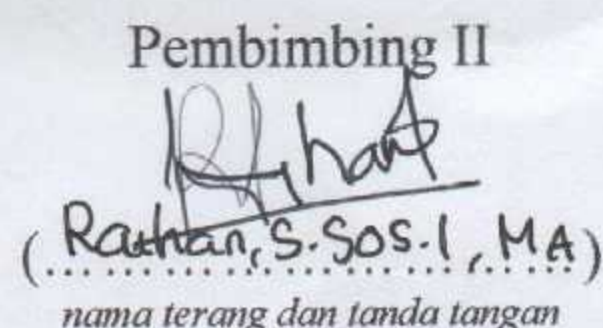 Pembimbing II
(Raihan, S.Sos.I, MA)
nama terang dan tanda tangan